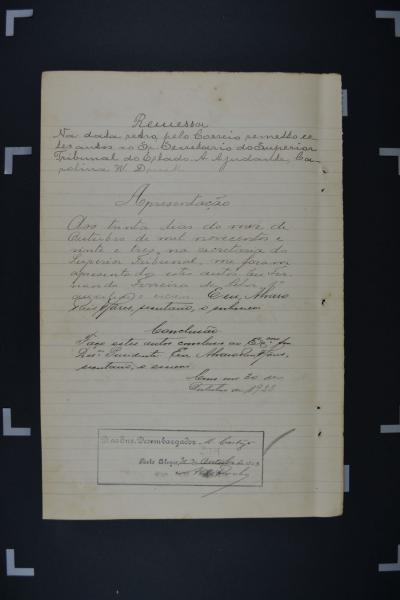 Remessa
Na data retro, pelo Correio remetto es
tes autos ao Sr. Secretario do Superior
Tribunal do Estado. A Ajudante, Ca
rolina W.
Apresentação
Aos trinta dias do mez de
Outubro de mil novecentos e
vinte e tres, na secretaria do
Superior Tribunal, me foram
apresentado estes autos. Eu Fer
nando Ferreira
escrevi. E eu, Alvaro
secretario, o subscrevi.
Conclusão
Faço estes autos conclusos ao Exmo Sr
Desor Presidente. Eu, Alvaro
secretario, o escrevi.
Clmo em 30 de
Outubro de 1923
D. ao Exc. Desembargador M. 
Porto Alegre, 31 de Outubro de 1923